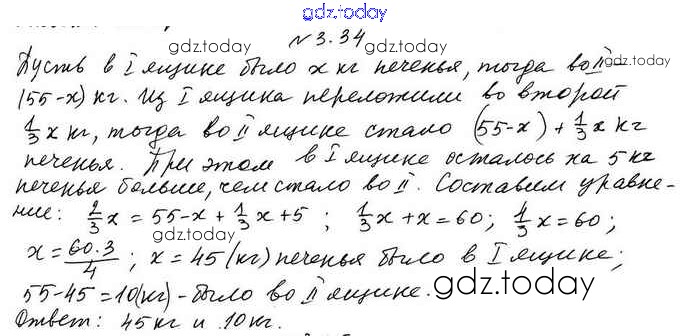 gdz.today
№3.34
gdz.today gdz.today
Пусть в I ящике было x кг печенья, тогда во II –
(55-x) кг. Из I ящика переложили во второй
1/3 x кг, тогда во II ящике стало (55-x) + 1/3 x кг
gdz.today gdz.today
печенья. При этом в I ящике осталось на 5 кг
печенья больше, чем стало во II. Составим уравне-
ние: 2/3 x = 55-x + 1/3 x + 5 ; 1/3 x + x = 60; 4/3 x = 60 ;
gdz.today gdz.today
x = 60·3/4 ; x = 45 (кг) печенья было в I ящике;
55-45 = 10(кг) - было во II ящике.
gdz.today
Ответ: 45 кг и 10 кг.